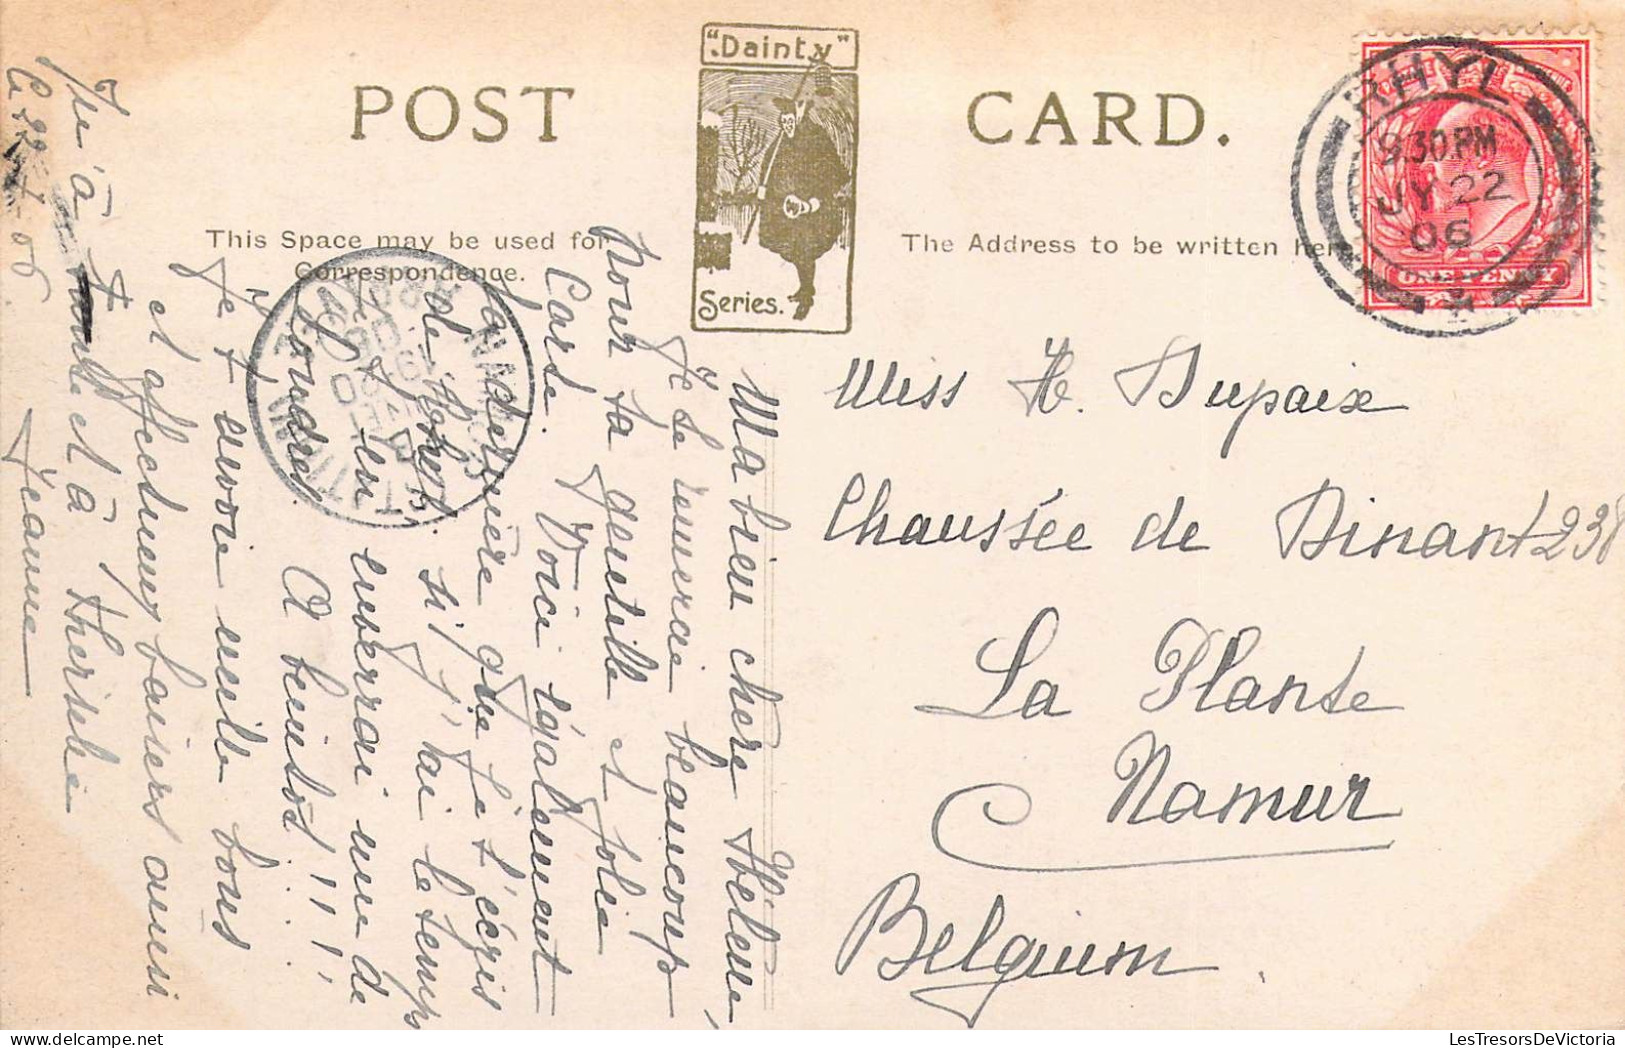 "Dainty"
POST CARD.
Series.
This Space may be used for
Correspondence.
The Address to be written here
RHYL
9.30.PM
JY 22
06
ONE PENNY
Miss H. Dupaix
Chaussée de Dinant 238
La Plante
Namur
Belgium
Ma bien chère Helene,
Je te remercie beaucoup
pour ta gentille et jolie
Carte. Voici également
la dernière que je t'écris
de Rhyl. si j'ai le temps
je t'en enverrai une de
Londres. A bientôt!!!!
Je t'envoie mille bons
et affectueux baisers ainsi
qu'à tante et à Thérésie
Jeanne
NAMUR
1906
LesTresorsDeVictoria